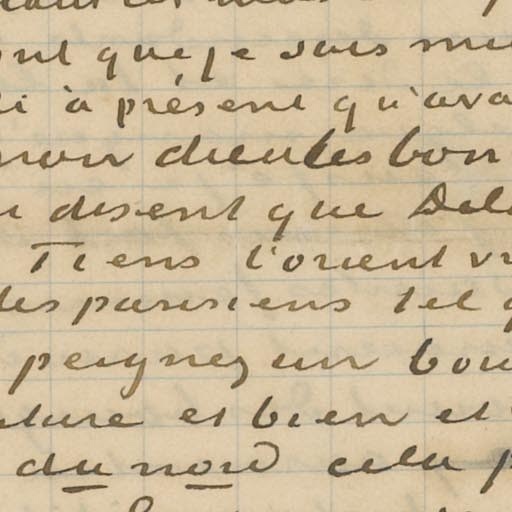 ont que je suis mie
à présent qu'ava
mon dieu les bon
disent que Dela
Tiens l'orient vr
les parisiens tel q
peignez un bou
ature et bien et
du nord cela p